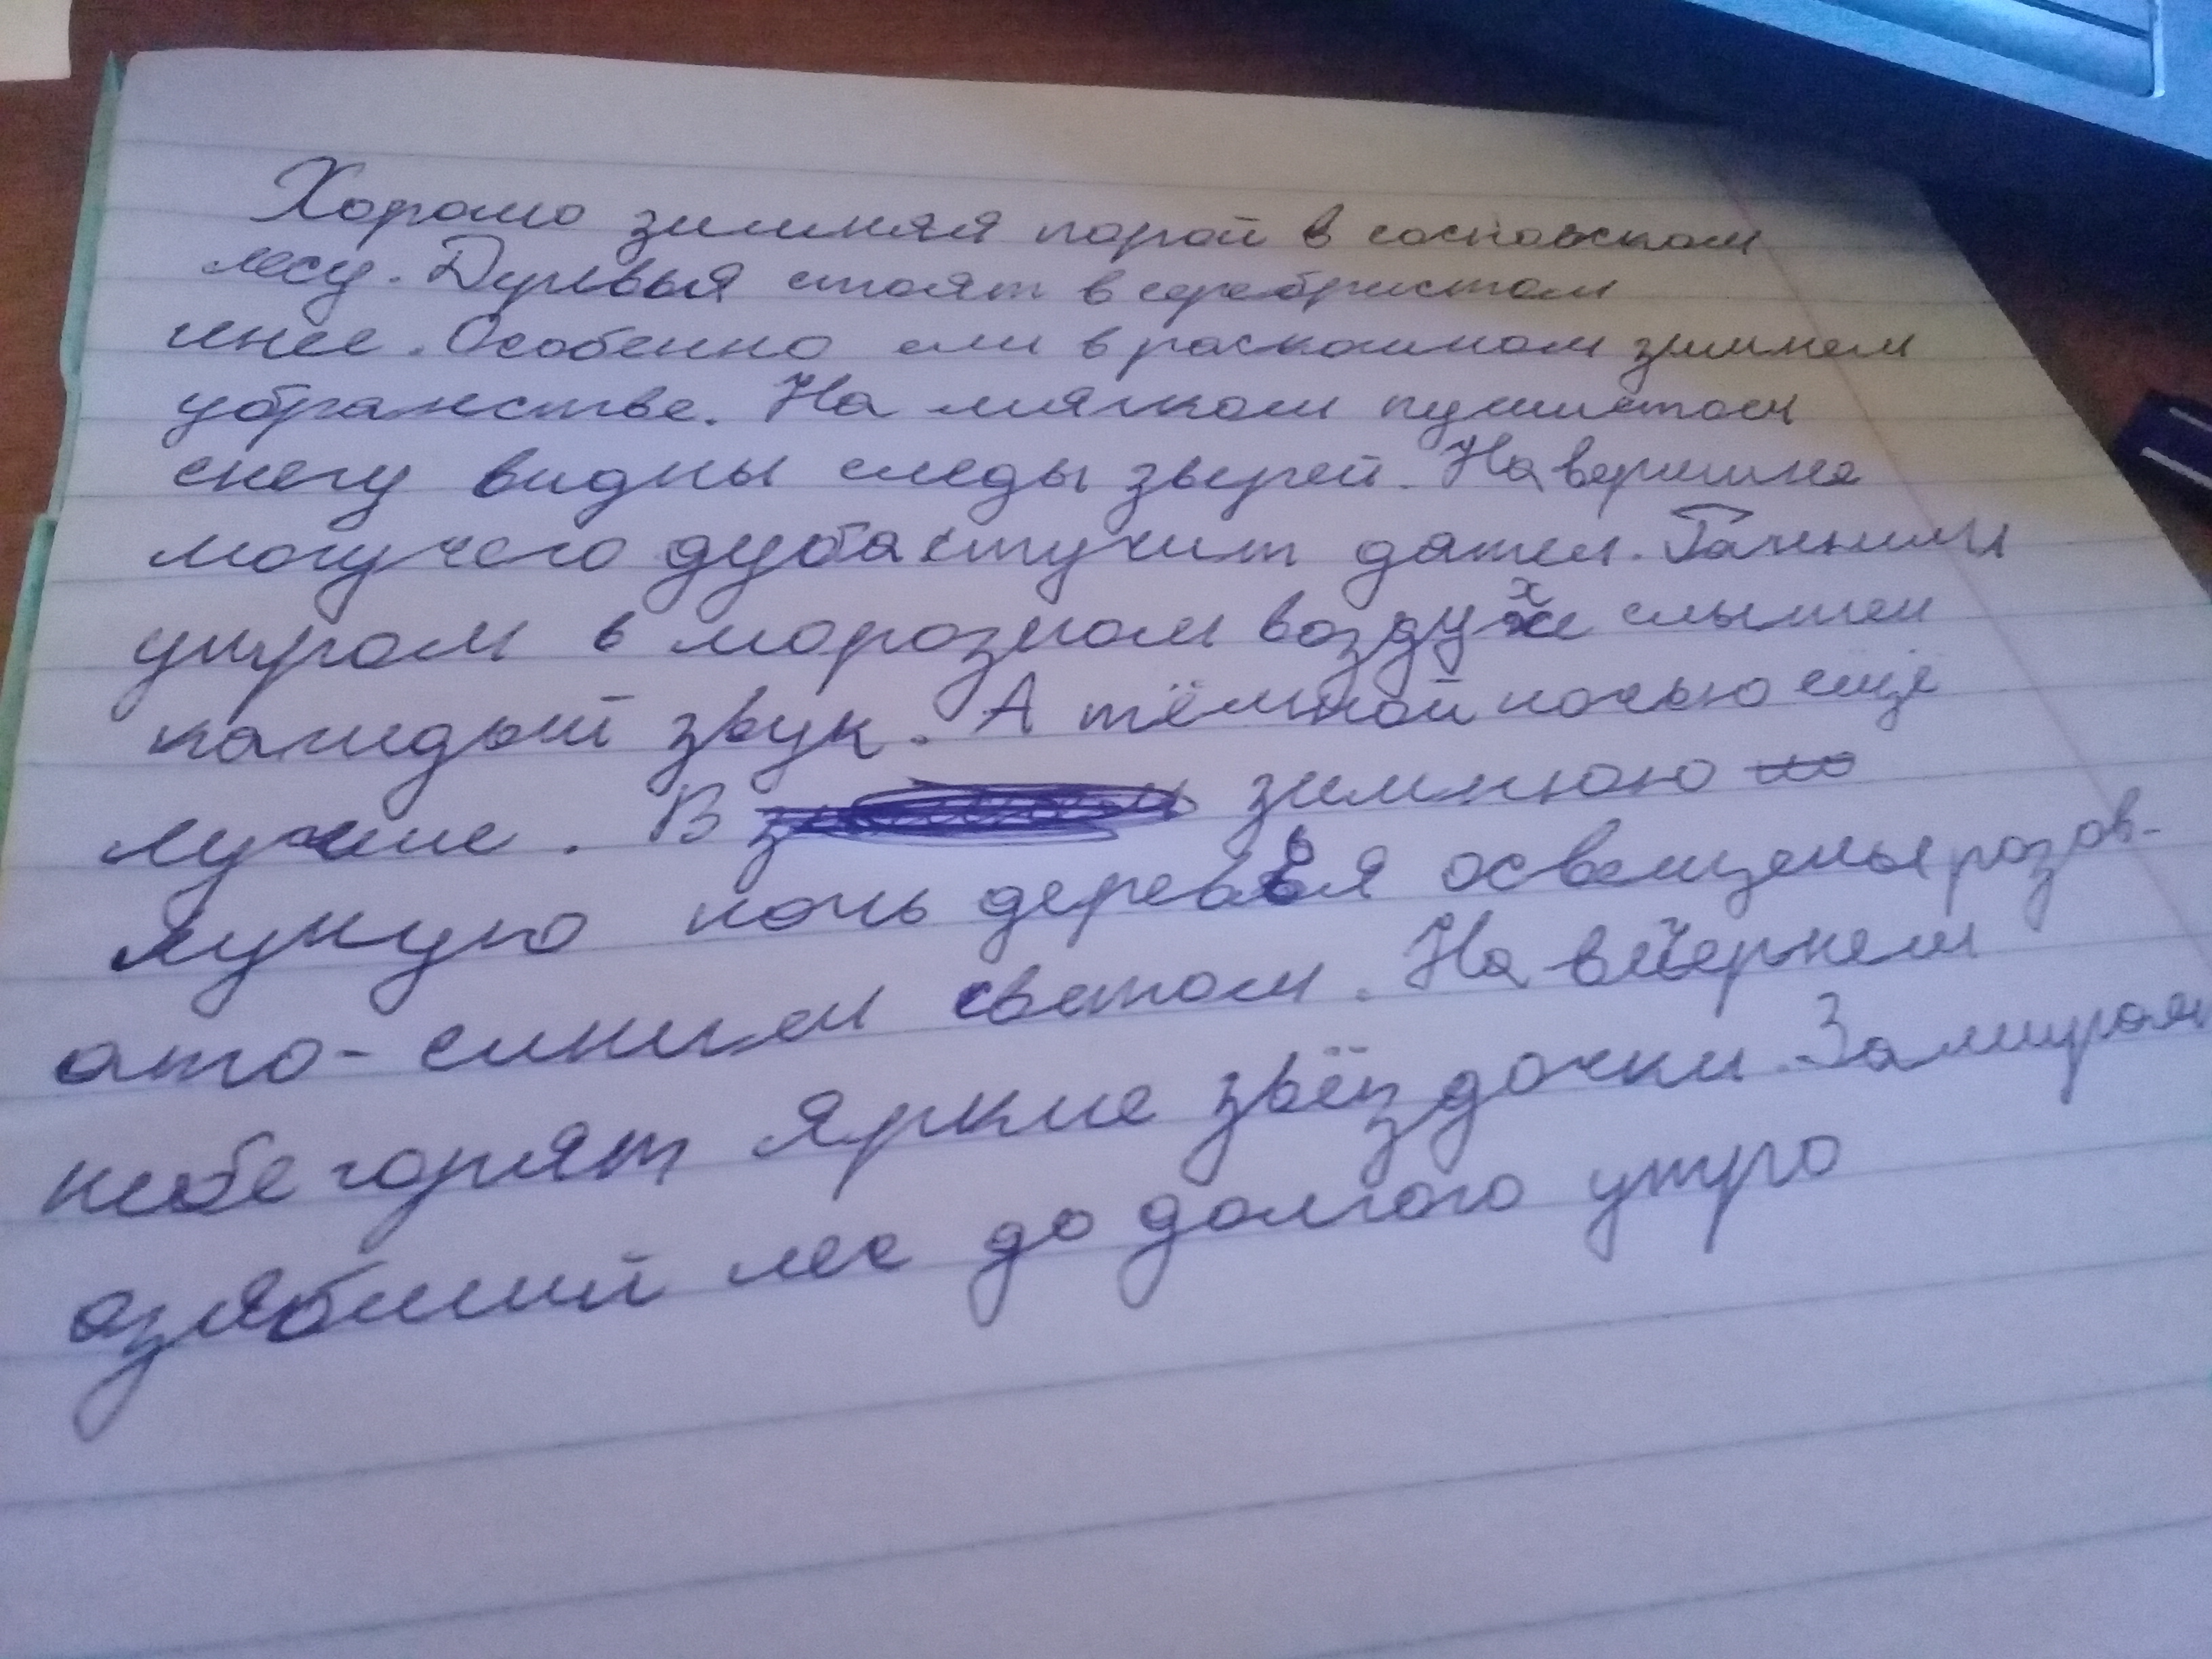 Хорошо зимняя порой в сосновском
лесу. Деревья стоят в серебристом
инее. Особенно ели в роскошном зимнем
убранстве. На мягком пушистом
снегу видны следы зверей. На вершине
могучего дуба стучит дятел.
утром в морозном воздухе слышен
каждый звук. А тёмной ночью ещё
лучше. В зимнюю
лунную ночь деревья освещены розов-
ато-синим светом. На вечернем
небе горят яркие звёздочки. Замирает
озябший лес до долгого утро